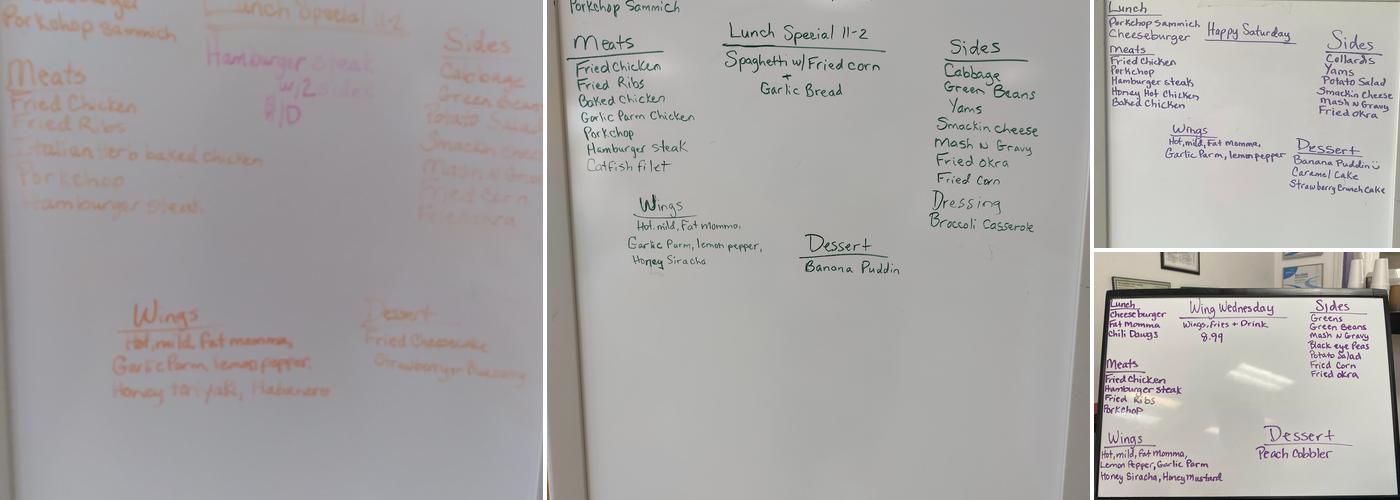 Porkchop Sammich
Lunch Special 11-2
Hamburger steak
w/2 sides
Meats
Fried Chicken
Fried Ribs
baked chicken
Porkchop
Hamburger steak
Sides
Cabbage
Green Beans
Potato Salad
Smackin cheese
Mash N Gravy
Fried Corn
Fried okra
Wings
Hot, mild, Fat momma,
Garlic Parm, lemon pepper,
Honey Teriyaki, Habanero
Dessert
Fried Cheesecake
Strawberry or Blueberry
Porkchop Sammich
Meats
Fried Chicken
Fried Ribs
Baked Chicken
Garlic Parm Chicken
Porkchop
Hamburger steak
Catfish filet
Lunch Special 11-2
Spaghetti w/Fried corn
+
Garlic Bread
Sides
Cabbage
Green Beans
Yams
Smackin cheese
Mash N Gravy
Fried okra
Fried Corn
Dressing
Broccoli Casserole
Wings
Hot, mild, Fat momma,
Garlic Parm, lemon pepper,
Honey Siracha
Dessert
Banana Puddin
Lunch
Porkchop Sammich
Cheeseburger
Happy Saturday
Meats
Fried Chicken
Porkchop
Hamburger steak
Honey Hot Chicken
Baked Chicken
Sides
Collards
Yams
Potato Salad
Smackin Cheese
Mash N Gravy
Fried okra
Wings
Hot, mild, Fat Momma,
Garlic Parm, lemon pepper
Dessert
Banana Puddin
Caramel Cake
Strawberry Crunch Cake
Lunch
Cheeseburger
Fat Momma
Chili Dawgs
Wing Wednesday
Wings, Fries + Drink
8.99
Sides
Greens
Green Beans
Mash N Gravy
Black eye Peas
Potato Salad
Fried Corn
Fried okra
Meats
Fried Chicken
Hamburger steak
Fried Ribs
Porkchop
Wings
Hot, mild, Fat Momma,
Lemon Pepper, Garlic Parm
Honey Siracha, Honey Mustard
Dessert
Peach Cobbler